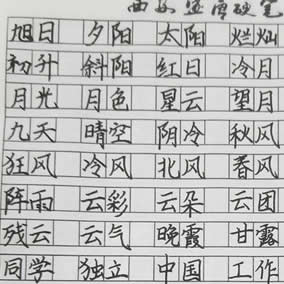 旭日 夕阳 太阳 烂灿
初升 斜阳 红日 冷月
月光 月色 星云 望月
九天 晴空 阴冷 秋风
狂风 冷风 北风 春风
阵雨 云彩 云朵 云团
残云 云气 晚霞 甘露
同学 独立 中国 工作